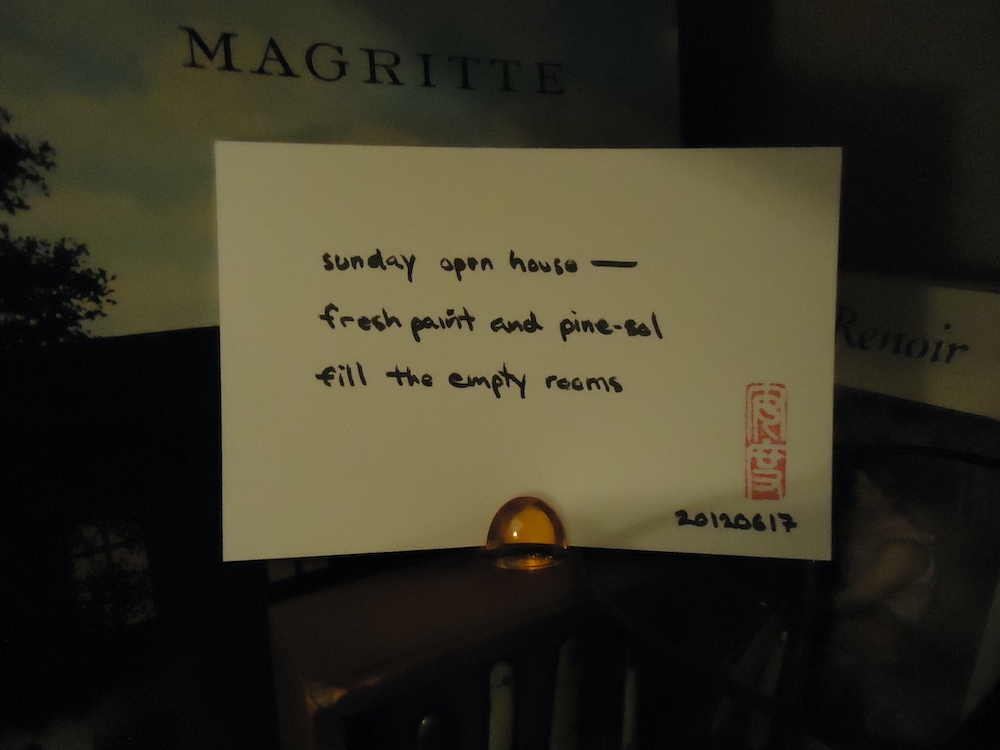 MAGRITTE
sunday open house —
fresh paint and pine-sol
fill the empty rooms
Renoir
20120617